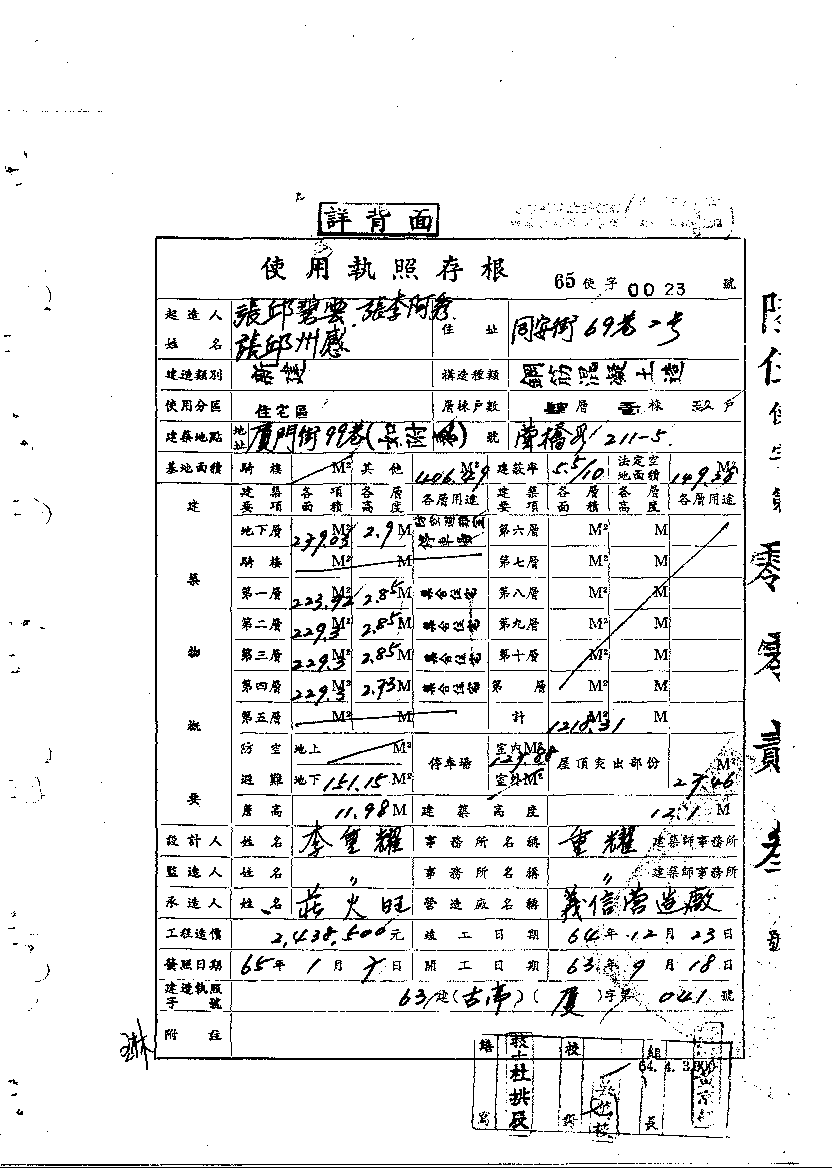 詳背面
使用執照存根
65使字0023號
起造人姓名 張邱碧雲 張李阿秀 張邱州感 住址 同安街69巷2号
建造類別 新建 構造種類 鋼筋混凝土造
使用分區 住宅區 層棟戶數 層 棟 戶
建築地點 地址 厦門街99巷( ) 號 螢橋段211-5
基地面積 騎樓 M² 其他 406.49 M² 建蔽率 5.5/10 法定空地面積 149.38 M²
建築物概要 建築要項 各項面積 各層高度 各層用途 建築要項 各層面積 各層高度 各層用途
地下層 239.03 M² 2.9 M 第六層 M² M
騎樓 M² M 第七層 M² M
第一層 223.92 M² 2.85 M 集合住宅 第八層 M² M
第二層 229.3 M² 2.85 M 集合住宅 第九層 M² M
第三層 229.3 M² 2.85 M 集合住宅 第十層 M² M
第四層 229.3 M² 2.73 M 集合住宅 第 層 M² M
第五層 M² M 計 1218.31 M²
防空避難 地上 M² 停車場 室內M² 屋頂突出部份 27.46 M²
地下 151.15 M² 室外M²
簷高 11.98 M 建築高度 12.1 M
設計人 姓名 李重耀 事務所名稱 重耀 建築師事務所
監造人 姓名 〃 事務所名稱 〃 建築師事務所
承造人 姓名 莊火旺 營造廠名稱 義信營造廠
工程造價 2,438,500元 竣工日期 64年12月23日
發照日期 65年1月7日 開工日期 63年9月18日
建造執照字號 63建(古亭)(厦)字第041號
附註
繕寫 技士杜拱辰 校對 組長
64.4.3,000
零零貳叁
號